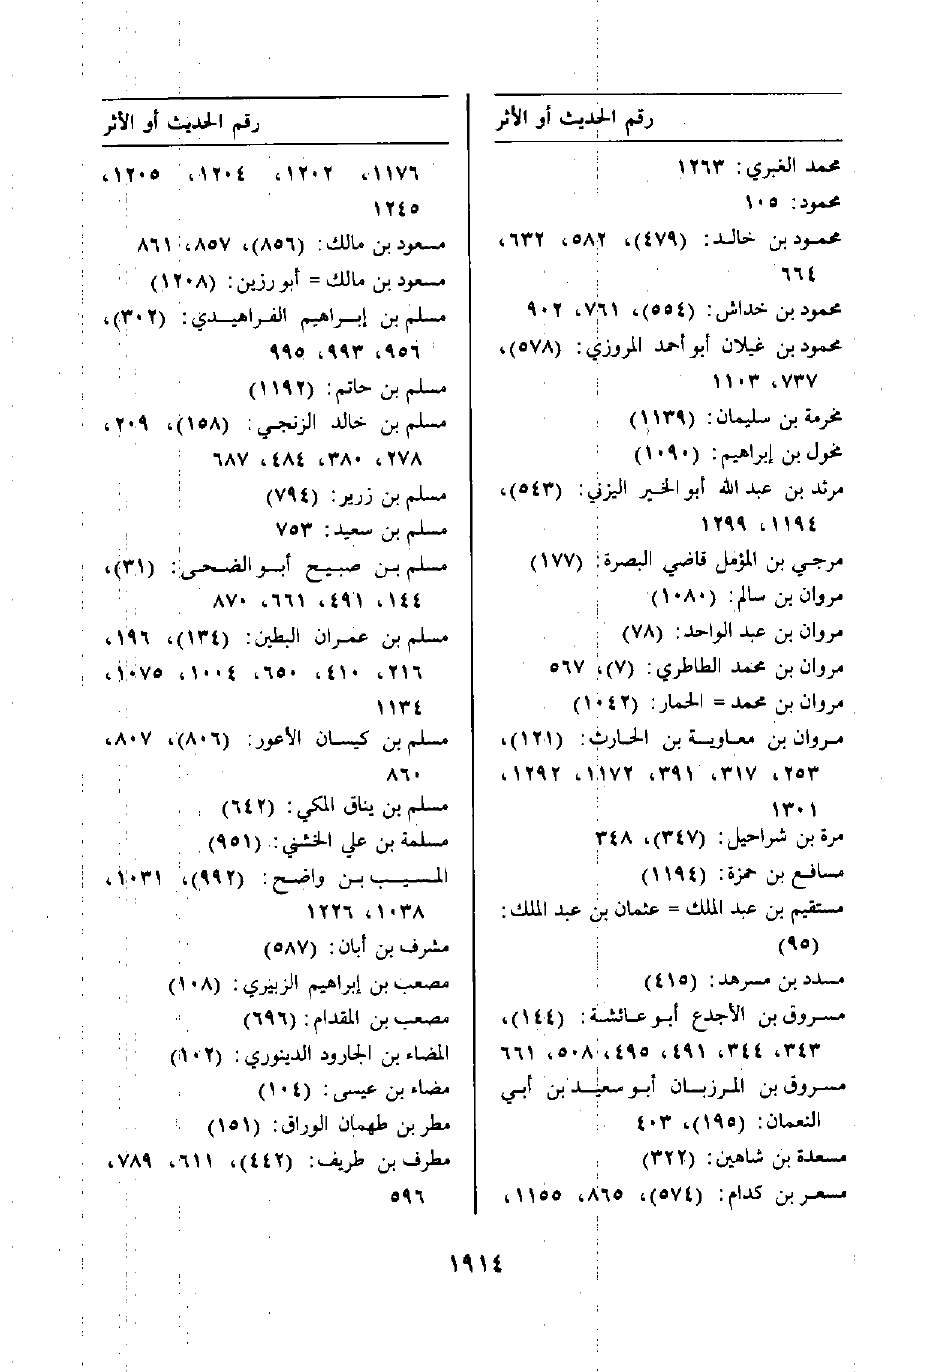 رقم الحديث أو الأثر
محمد الغبري: ١٢٦٣
محمود: ١٠٥
محمود بن خالد: (٤٧٩)، ٥٨٢، ٦٣٢،
٦٦٤
محمود بن خداش: (٥٥٤)، ٧٦١، ٩٠٢
محمود بن غيلان أبو أحمد المروزي: (٥٧٨)،
٧٣٧، ١١٠٣
مخرمة بن سليمان: (١١٣٩)
مخول بن إبراهيم: (١٠٩٠)
مرثد بن عبد الله أبو الخير اليزني: (٥٤٣)،
١١٩٤، ١٢٩٩
مرجي بن المؤمل قاضي البصرة: (١٧٧)
مروان بن سالم: (١٠٨٠)
مروان بن عبد الواحد: (٧٨)
مروان بن محمد الطاطري: (٧)، ٥٦٧
مروان بن محمد = الحمار: (١٠٤٢)
مروان بن معاوية بن الحارث: (١٢١)،
٢٥٣، ٣١٧، ٣٩١، ١١٧٢، ١٢٩٢،
١٣٠١
مرة بن شراحيل: (٣٤٧)، ٣٤٨
مسافع بن حمزة: (١١٩٤)
مستقيم بن عبد الملك = عثمان بن عبد الملك:
(٩٥)
مسدد بن مسرهد: (٤١٥)
مسروق بن الأجدع أبو عائشة: (١٤٤)،
٣٤٣، ٣٤٤، ٤٩١، ٤٩٥، ٥٠٨، ٦٦١
مسروق بن المرزبان أبو سعيد بن أبي
النعمان: (١٩٥)، ٤٠٣
مسعدة بن شاهين: (٣٢٢)
مسعر بن كدام: (٥٧٤)، ٨٦٥، ١١٥٥،
رقم الحديث أو الأثر
١١٧٦، ١٢٠٢، ١٢٠٤، ١٢٠٥،
١٢٤٥
مسعود بن مالك: (٨٥٦)، ٨٥٧، ٨٦١
مسعود بن مالك = أبو رزين: (١٢٠٨)
مسلم بن إبراهيم الفراهيدي: (٣٠٢)،
٩٥٦، ٩٩٣، ٩٩٥
مسلم بن حاتم: (١١٩٢)
مسلم بن خالد الزنجي: (١٥٨)، ٢٠٩،
٢٧٨، ٣٨٠، ٤٨٤، ٦٨٧
مسلم بن زرير: (٧٩٤)
مسلم بن سعيد: ٧٥٣
مسلم بن صبيح أبو الضحى: (٣١)،
١٤٤، ٤٩١، ٦٦١، ٨٧٠
مسلم بن عمران البطين: (١٣٤)، ١٩٦،
٢١٦، ٤١٠، ٦٥٠، ١٠٠٤، ١٠٧٥،
١١٣٤
مسلم بن كيسان الأعور: (٨٠٦)، ٨٠٧،
٨٦٠
مسلم بن يناق المكي: (٦٤٢)
مسلمة بن علي الخشني: (٩٥١)
المسيب بن واضح: (٩٩٢)، ١٠٣١،
١٠٣٨، ١٢٢٦
مشرف بن أبان: (٥٨٧)
مصعب بن إبراهيم الزبيري: (١٠٨)
مصعب بن المقدام: (٦٩٦)
المضاء بن الجارود الدينوري: (١٠٢)
مضاء بن عيسى: (١٠٤)
مطر بن طهمان الوراق: (١٥١)
مطرف بن طريف: (٤٤٢)، ٦١١، ٧٨٩،
٥٩٦
١٩١٤